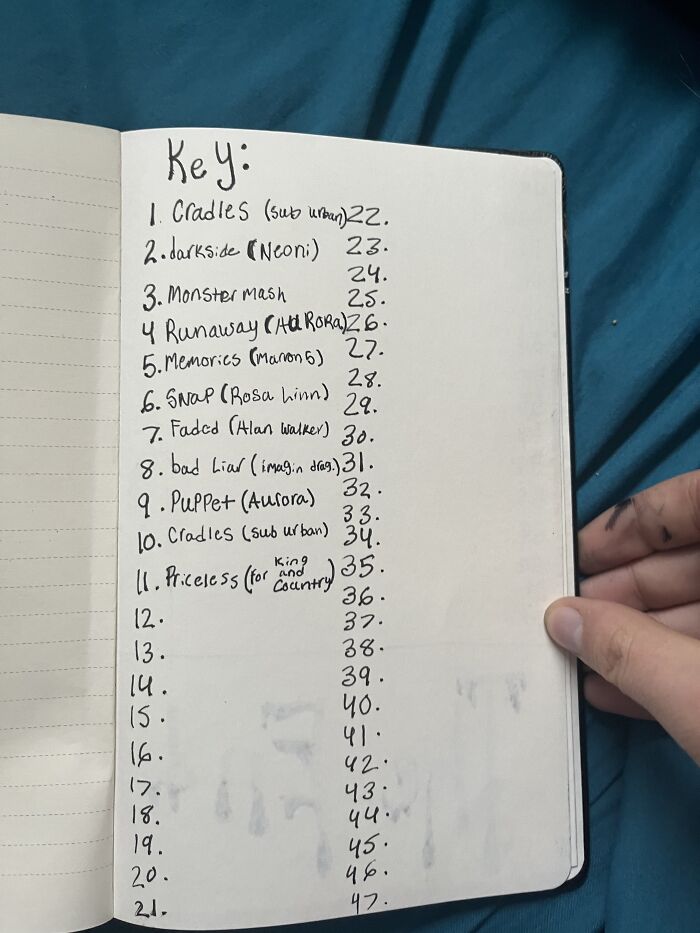 Key:
1. Cradles (sub urban)
2. darkside (Neoni)
3. Monster mash
4 Runaway (AuRoRa)
5. Memories (Maroon 5)
6. SNAP (Rosa Linn)
7. Faded (Alan Walker)
8. bad Liar (imagin drag.)
9. Puppet (Aurora)
10. Cradles (sub urban)
11. Priceless (for King and Country)
12.
13.
14.
15.
16.
17.
18.
19.
20.
21.
22.
23.
24.
25.
26.
27.
28.
29.
30.
31.
32.
33.
34.
35.
36.
37.
38.
39.
40.
41.
42.
43.
44.
45.
46.
47.